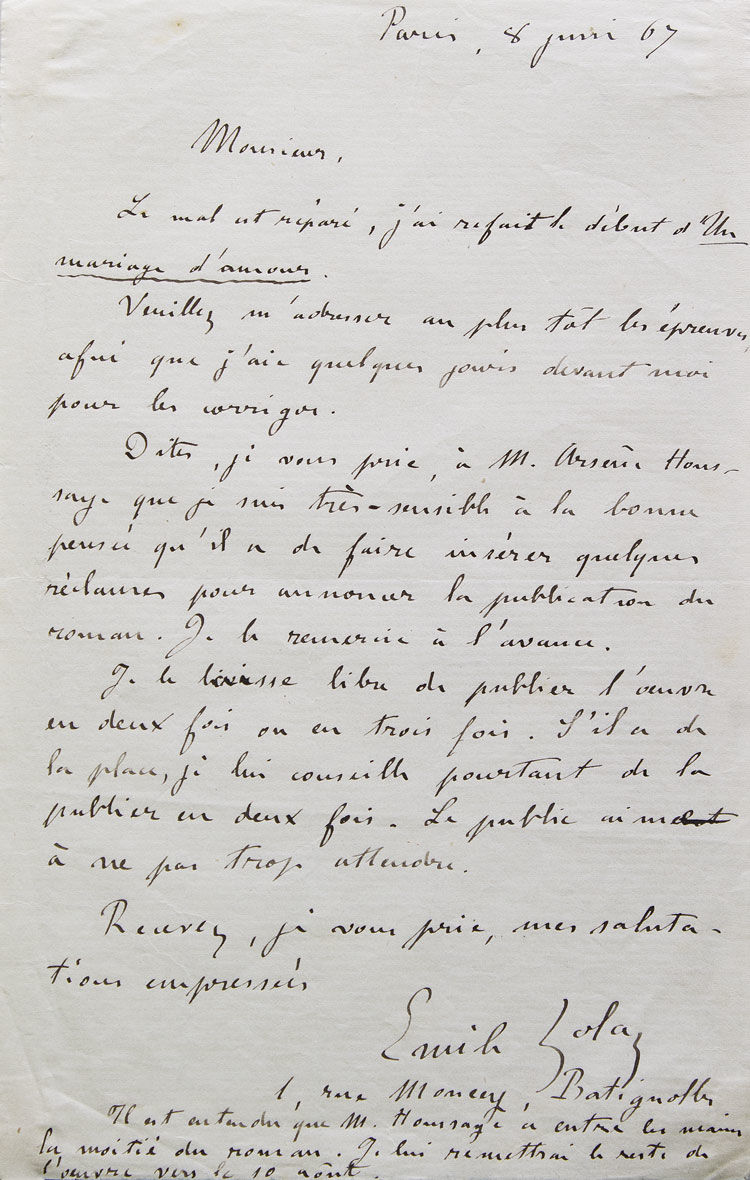 Paris, 8 juin 67
Monsieur,
Le mal est réparé, j'ai refait le début d'Un
mariage d'amour.
Veuillez m'adresser au plus tôt les épreuves,
afin que j'aie quelques jours devant moi
pour les corriger.
Dites, je vous prie, à M. Arsène Hous-
saye que je suis très-sensible à la bonne
pensée qu'il a de faire insérer quelques
réclames pour annoncer la publication du
roman. Je le remercie à l'avance.
Je le laisse libre de publier l'œuvre
en deux fois ou en trois fois. S'il a de
la place, je lui conseille pourtant de la
publier en deux fois. Le public aime
à ne pas trop attendre.
Recevez, je vous prie, mes saluta-
tions empressées
Emile Zola
1, rue Moncey, Batignolles
Il est entendu que M. Houssaye a entre les mains
la moitié du roman. Je lui remettrai le reste de
l'œuvre vers le 10 août.